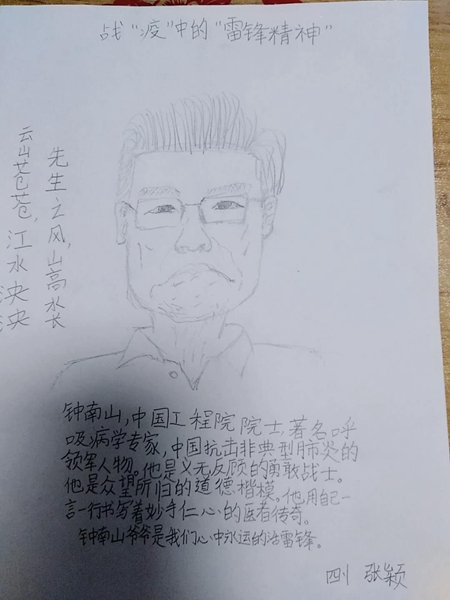 战“疫”中的“雷锋精神”
云山苍苍,江水泱泱
先生之风,山高水长
钟南山,中国工程院院士,著名呼
吸病学专家,中国抗击非典型肺炎的
领军人物。他是义无反顾的勇敢战士。
他是众望所归的道德楷模。他用自己一
言一行书写着妙手仁心的医者传奇。
钟南山爷爷是我们心中永远的活雷锋。
四1 张颖